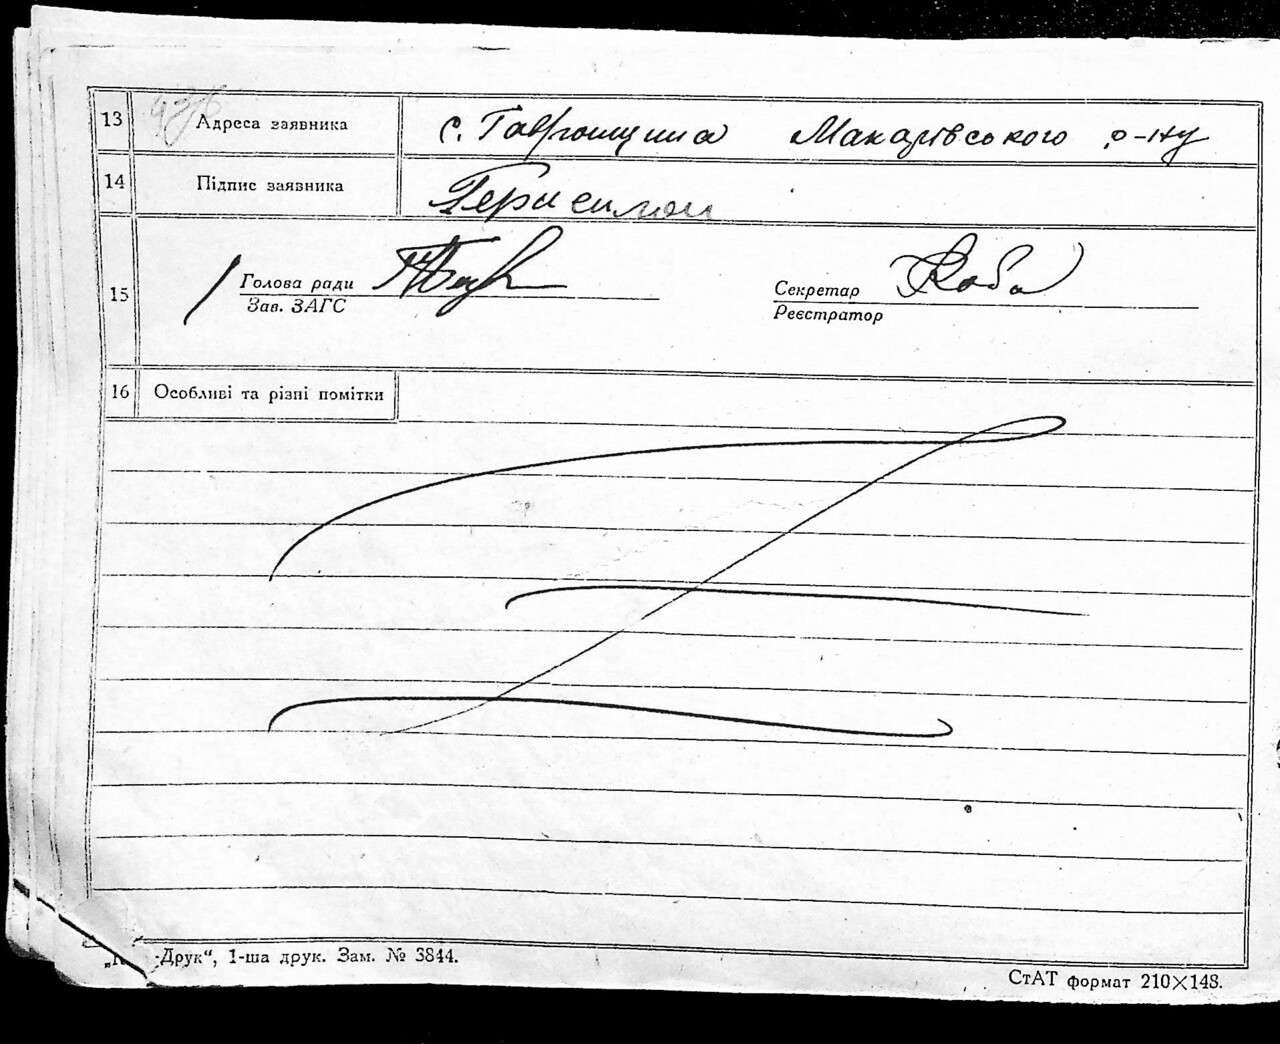 436
13 Адреса заявника с. Гавронщина Макарівського р-ну
14 Підпис заявника Герасимои
15 Голова ради Секретар Коба
Зав. ЗАГС Реєстратор
16 Особливі та різні помітки
-Друк“, 1-ша друк. Зам. № 3844.
СтАТ формат 210×148.